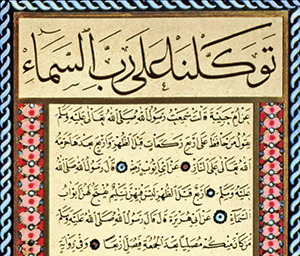 توكلنا على رب السماء
عن أم حبيبة قالت سمعت رسول الله صلى الله تعالى عليه وسلم
يقول من حافظ على أربع ركعات قبل الظهر وأربع بعدها حرمه
الله تعالى على النار عن أبي أيوب قال رسول الله صلى الله
عليه وسلم أربع قبل الظهر ليس فيهن تسليم تفتح لهن أبواب
السماء عن أبي هريرة قال قال رسول الله صلى الله عليه وسلم
من كان منكم مصليا بعد الجمعة فليصل أربعا وفي رواية